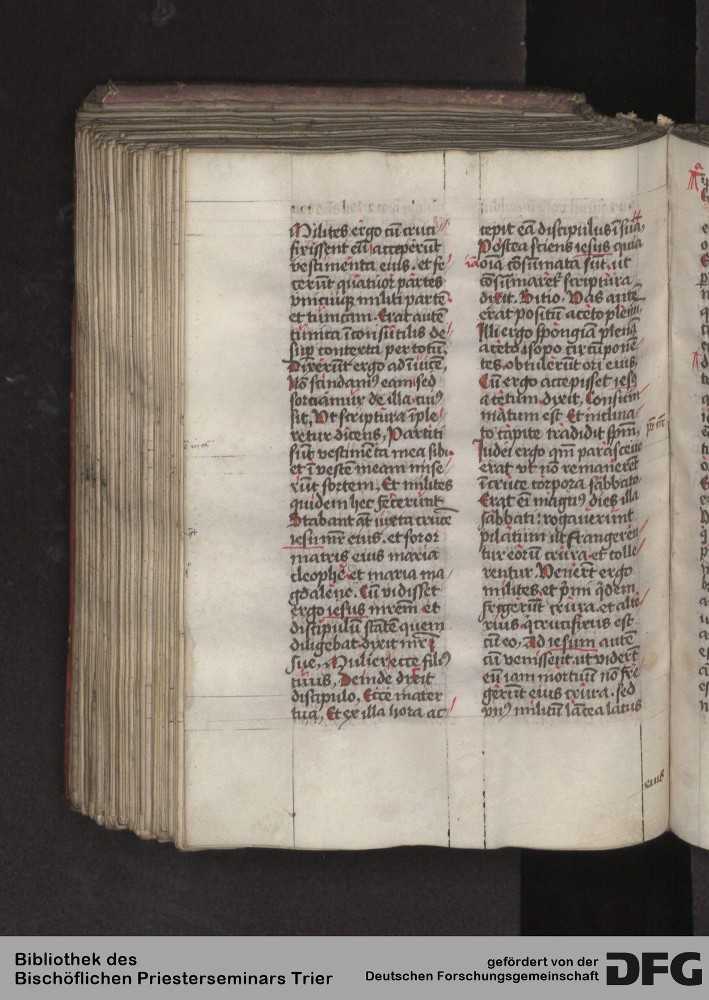 Milites ergo cū cruci
fixissent eū acceperūt
vestimenta eius. et fe
cerūt quatuor partes
vnicuiqȝ militi partē.
et tunicam. Erat autē
tunica īconsutilis de
sup contexta per totū.
Dixerūt ergo ad īuicē.
Nō scindamꝰ eam sed
sorciamur de illa cuiꝰ
sit, Vt scriptura īple
retur dicens, Partiti
sūt vestimēta mea sibi.
et ī veste meam mise
rūt sortem, Et milites
quidem hec fecerunt
Stabant aūt iuxta crucē
iesu mr̄ eius. et soror
matris eius maria
cleophe et maria ma
gdalene. Cū vidisset
ergo iesus mrēm et
discipulū stātē quem
diligebat dixit mr̄i
sue, Mulier ecce filiꝰ
tuus, Deinde dixit
discipulo, Ecce mater
tua, Et ex illa hora ac
cepit eā discipulus ī sua
Postea sciens iesus quia
oīa cōsūmata sūt, ut
cōsūmaret᷑ scriptura
dixit. Sitio. Vas autē
erat positū aceto plenū
Illi ergo spōngiā plenā
aceto isopo circūpone
tes. obtulerūt ori eius,
Cū ergo accepisset iesꝰ
acetum dixit, Consum
matum est Et inclina
to capite tradidit spm̄,
Iudei ergo qm̄ parasceue
erat vt nō remanerēt
ī cruce corpora sabbato
Erat eī magnꝰ dies illa
sabbati: rogauerunt
pilatum ut frangeren
tur eorū crura et tolle
rentur. Venerūt ergo
milites. et p̄mi q̄dem
fregerūt crura. et alte
rius. q̄ crucifixus est
cū eo, Ad iesum autē
cū venissent. ut viderūt
eū iam mortuū nō fre
gerūt eius crura. sed
vnꝰ militū lācea latus
eius
Bibliothek des
Bischöflichen Priesterseminars Trier
gefördert von der
Deutschen Forschungsgemeinschaft
DFG